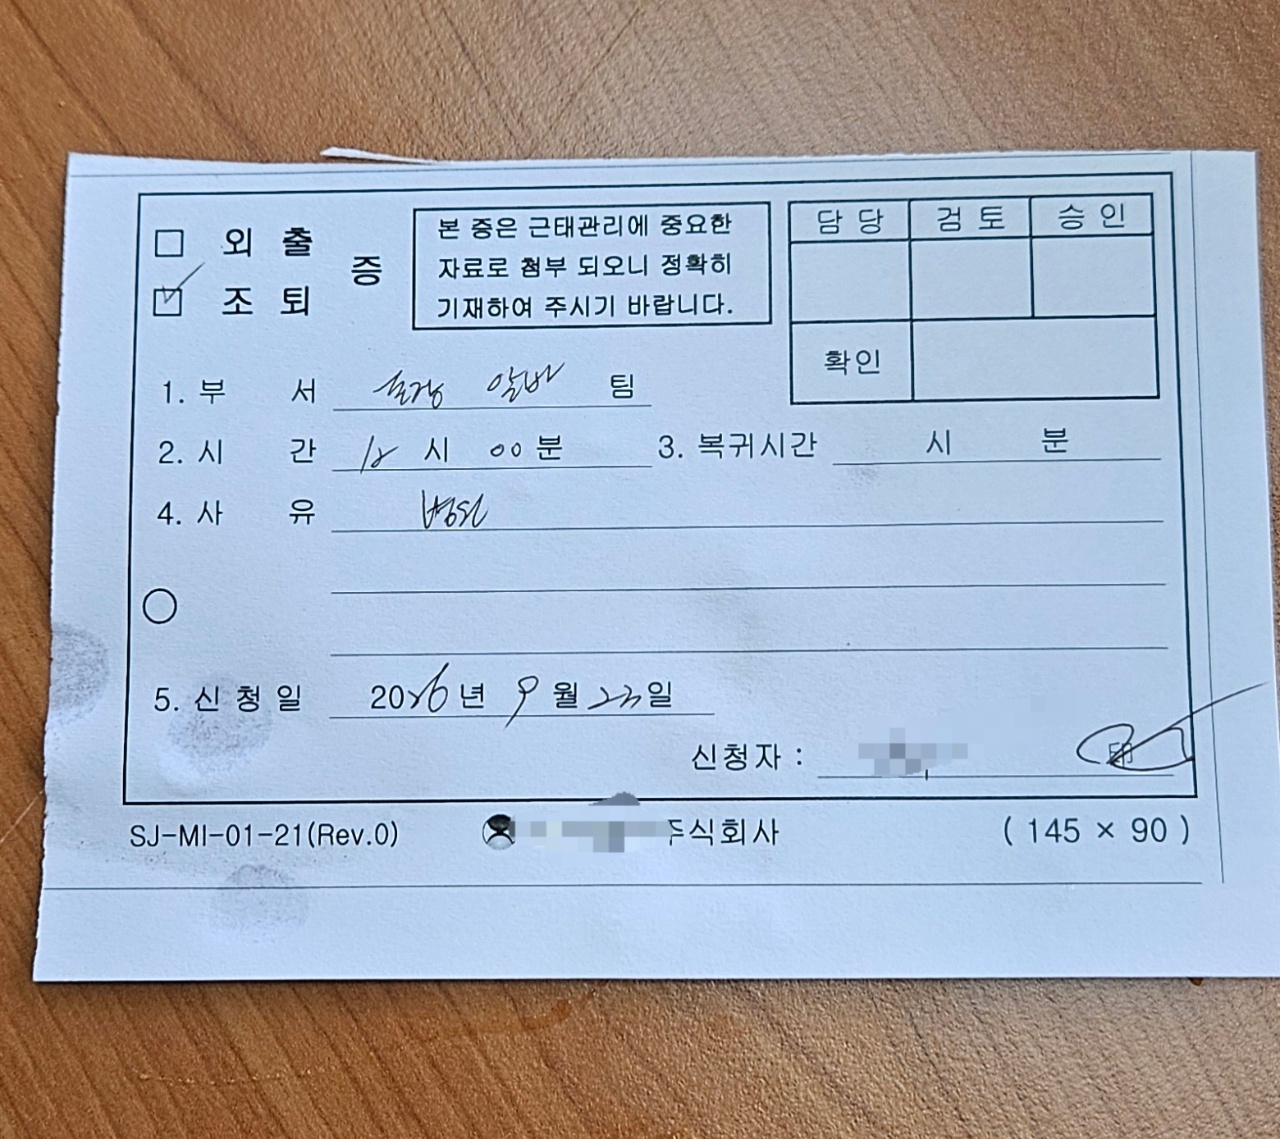 외 출
조 퇴
증
본 증은 근태관리에 중요한
자료로 첨부 되오니 정확히
기재하여 주시기 바랍니다.
담 당 검 토 승 인
확인
1. 부 서 알바 팀
2. 시 간 12 시 00 분 3. 복귀시간 시 분
4. 사 유 병원
5. 신 청 일 2026 년 9 월 23 일
신청자 : 印
SJ-MI-01-21(Rev.0) 주식회사 ( 145 × 90 )